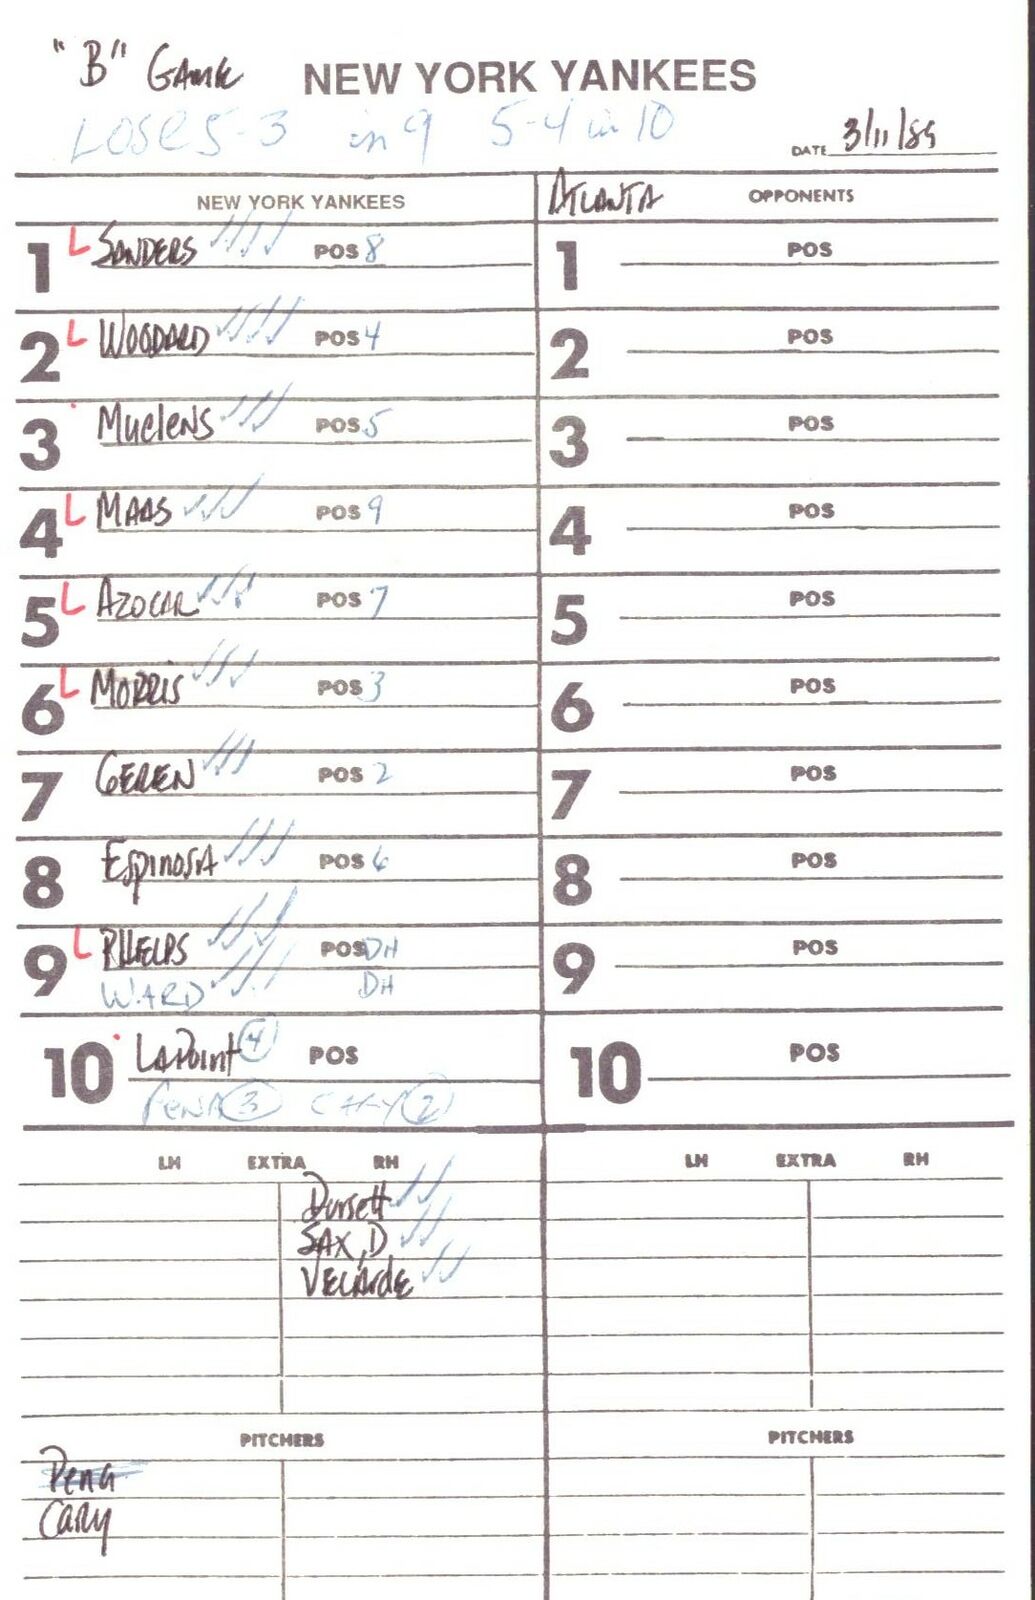 "B" Game NEW YORK YANKEES
LOSE 5-3 in 9 5-4 in 10
DATE 3/11/89
NEW YORK YANKEES ATLANTA OPPONENTS
1 L SANDERS POS 8 1 POS
2 L WOODARD POS 4 2 POS
3 Muelens POS 5 3 POS
4 L MAAS POS 9 4 POS
5 L AZOCAR POS 7 5 POS
6 L MORRIS POS 3 6 POS
7 GEREN POS 2 7 POS
8 Espinosa POS 6 8 POS
9 L PHELPS POS DH 9 POS
WARD DH
10 LaPoint 4 POS 10 POS
PENA 3 CARY 2
LH EXTRA RH LH EXTRA RH
Dorsett
SAX, D
VELARDE
PITCHERS PITCHERS
Pena
Cary